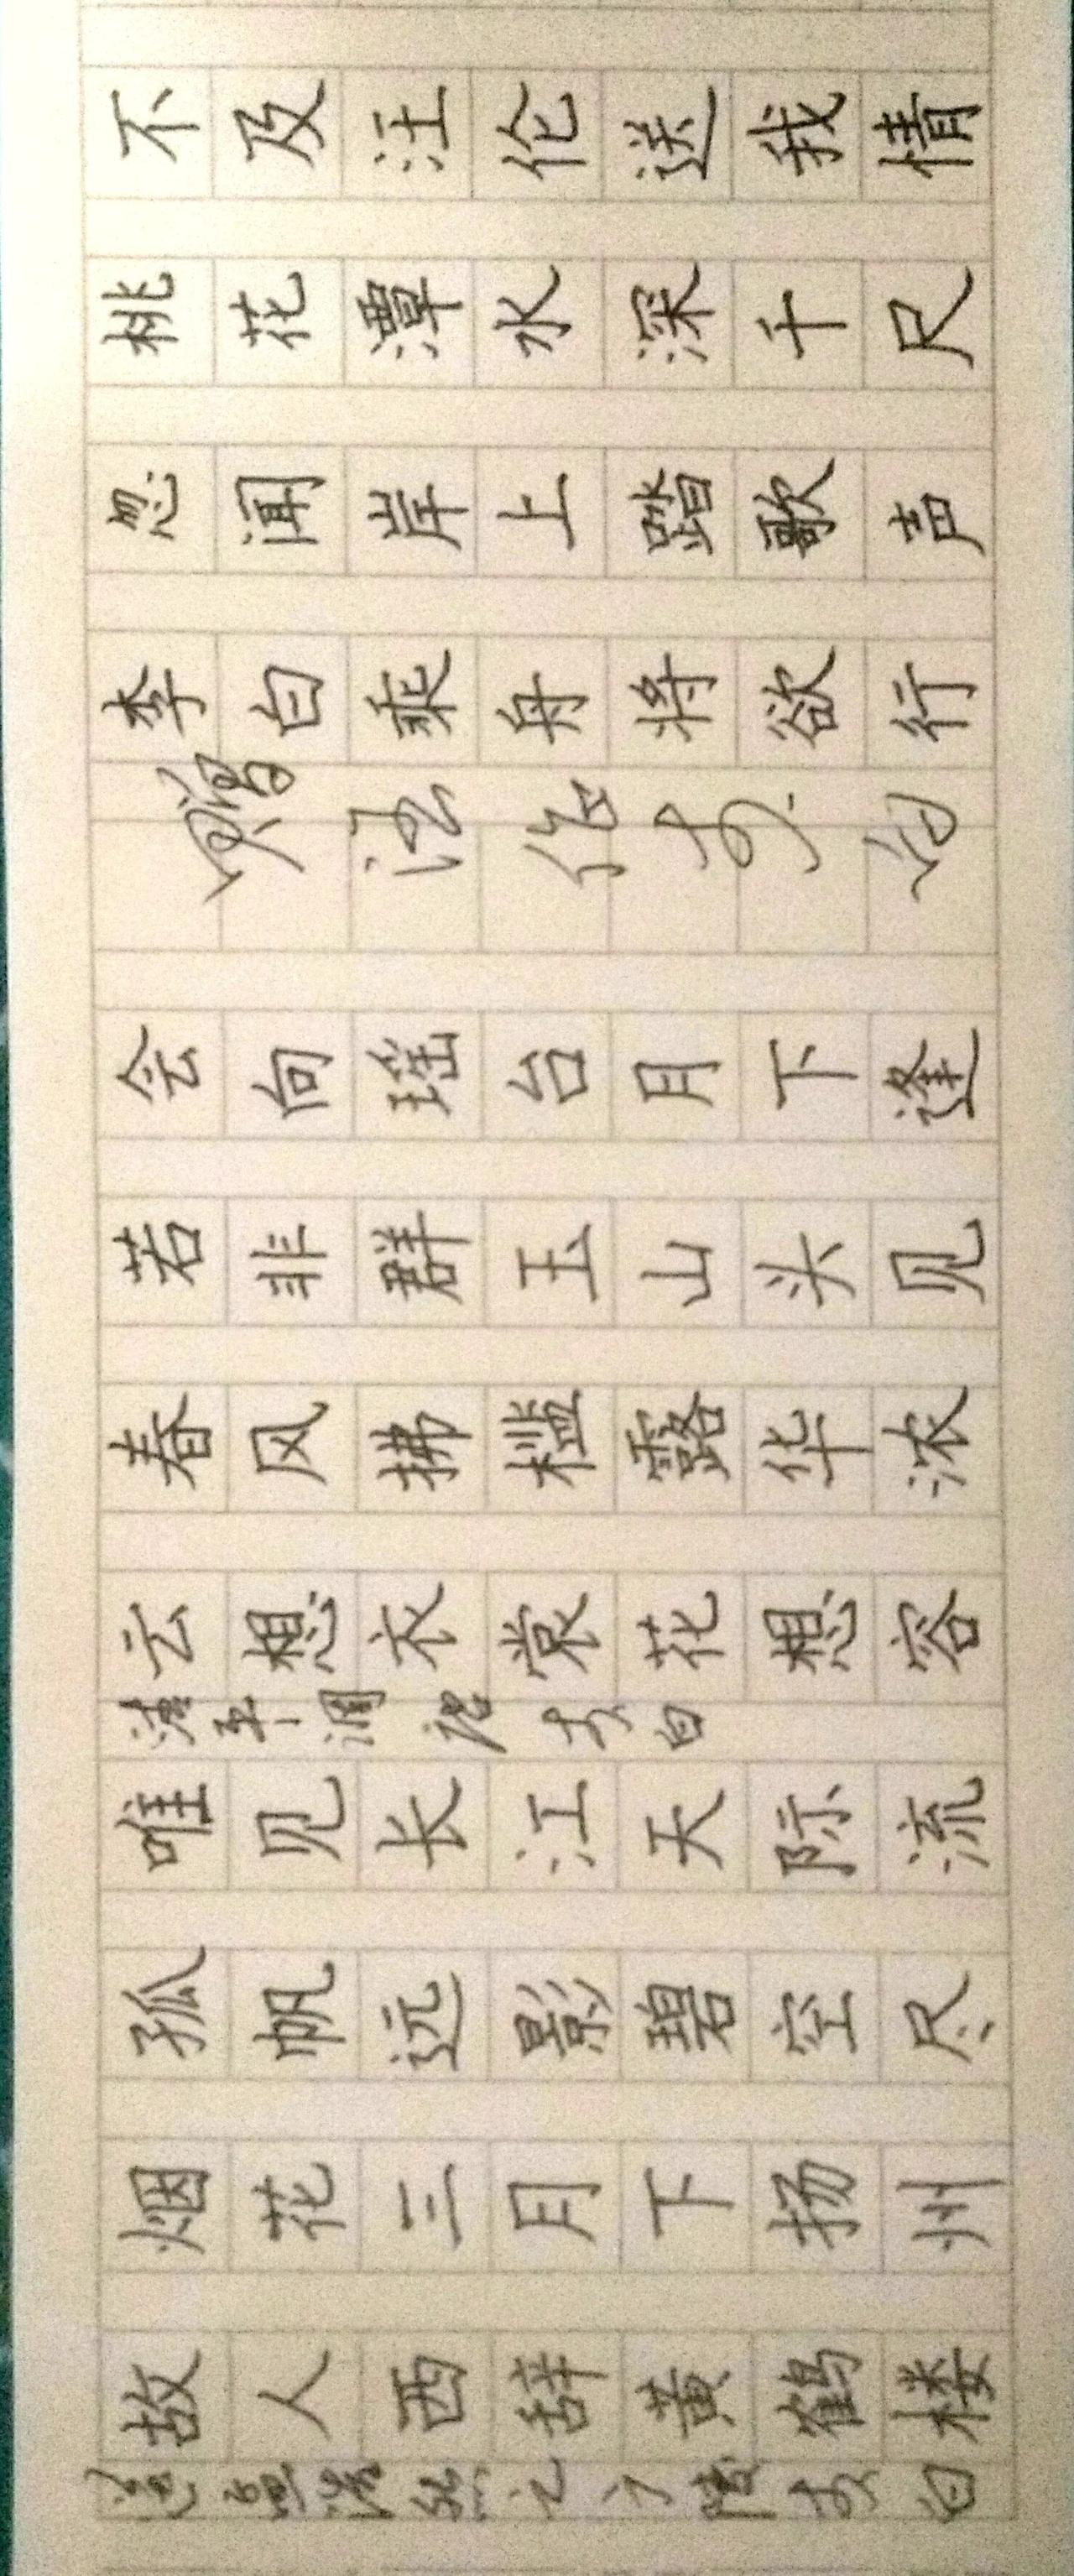 送孟浩然之广陵李白
故人西辞黄鹤楼
烟花三月下扬州
孤帆远影碧空尽
唯见长江天际流
清平调李白
云想衣裳花想容
春风拂槛露华浓
若非群玉山头见
会向瑶台月下逢
赠汪伦李白
李白乘舟将欲行
忽闻岸上踏歌声
桃花潭水深千尺
不及汪伦送我情